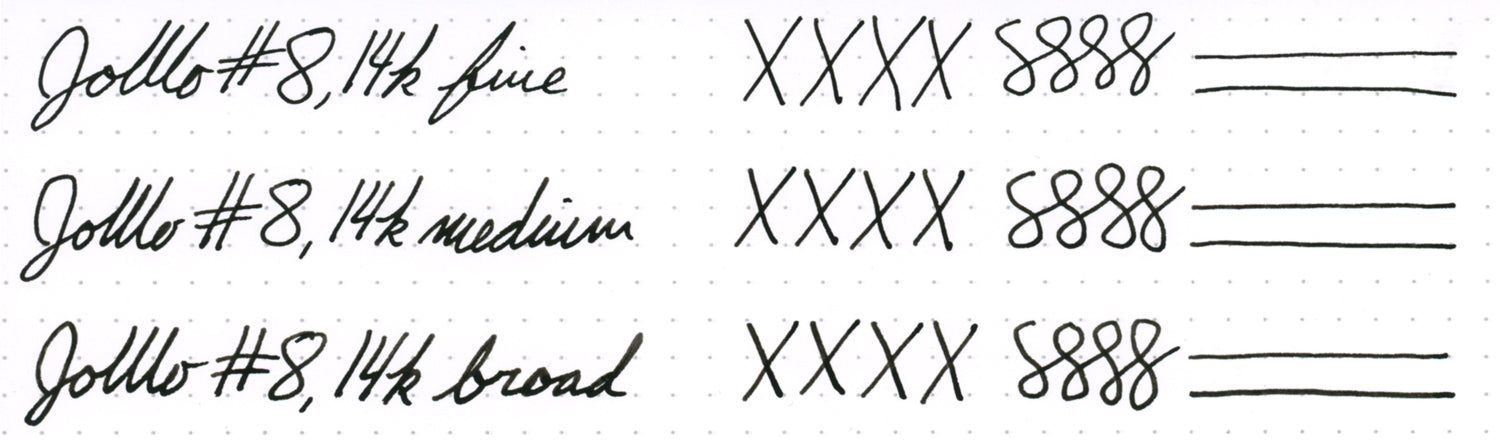 JoWo #8, 14k fine XXXX 8888
JoWo #8, 14k medium XXXX 8888
JoWo #8, 14k broad XXXX 8888